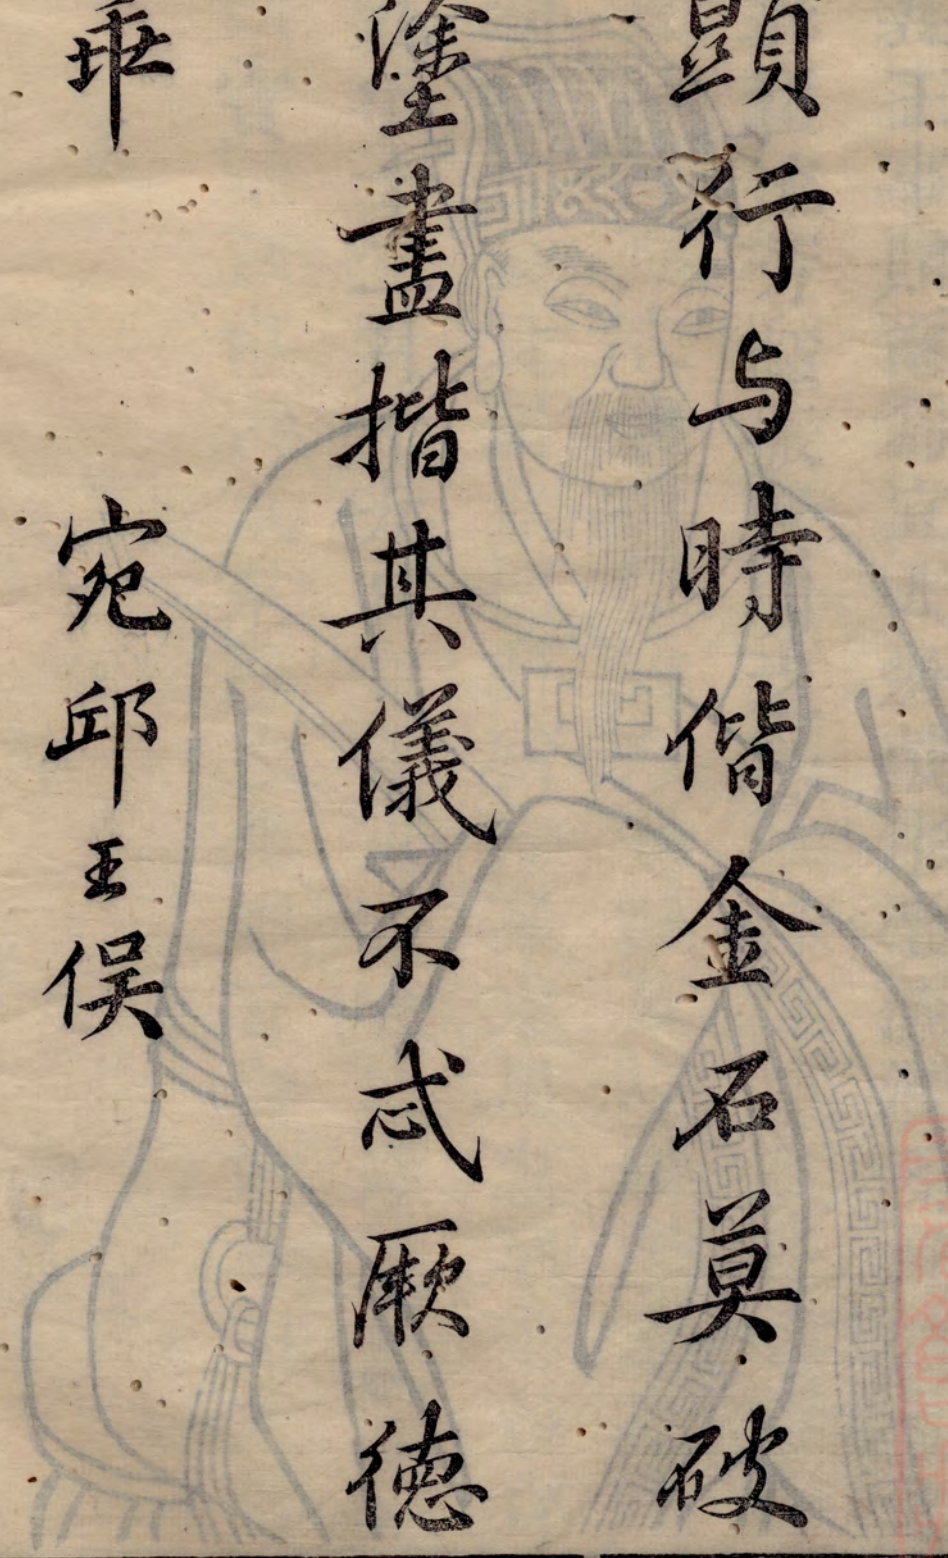 顕行与時偕金石莫破
塗畫揩其儀不忒厥徳
乖　宛邱王俣